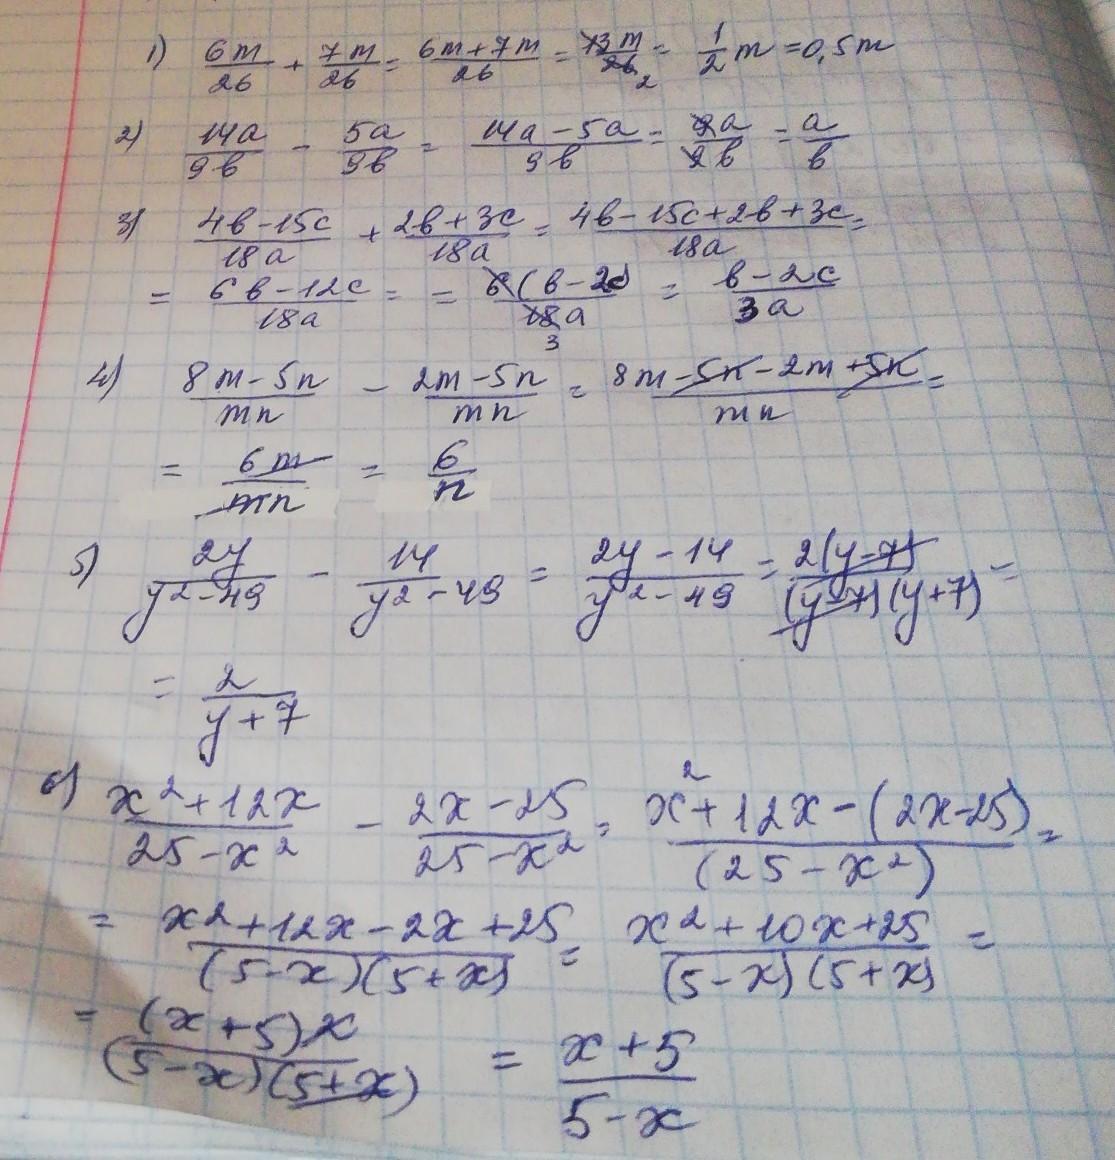 1) 6m/26 + 7m/26 = 6m+7m/26 = 13m/26 2 = 1/2 m = 0,5m
2) 14a/9b - 5a/9b = 14a-5a/9b = 9a/9b = a/b
3) 4b-15c/18a + 2b+3c/18a = 4b-15c+2b+3c/18a =
= 6b-12c/18a = = 6(b-2c)/18a 3 = b-2c/3a
4) 8m-5n/mn - 2m-5n/mn = 8m-5n-2m+5n/mn =
= 6m/mn = 6/n
5) 2y/y²-49 - 14/y²-49 = 2y-14/y²-49 = 2(y-7)/(y-7)(y+7) =
= 2/y+7
6) x²+12x/25-x² - 2x-25/25-x² = x²+12x-(2x-25)/(25-x²) =
= x²+12x-2x+25/(5-x)(5+x) = x²+10x+25/(5-x)(5+x) =
= (x+5)/(5-x)(5+x) = x+5/5-x